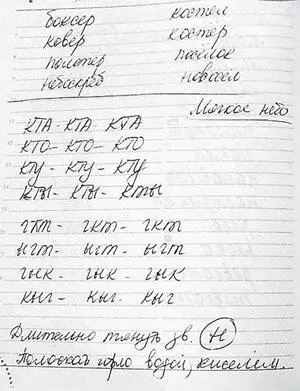 боксер костел
ковер костер
полотер поселок
небоскреб новосел
Мягкое небо
КТА - КТА КТА
КТО - КТО - КТО
КТУ - КТУ - КТУ
КТЫ - КТЫ - КТЫ
гкт - гкт - гкт
ыгт - ыгт - ыгт
гык - гык - гык
кыг - кыг - кыг
Длительно тянуть зв. Н
Полоскать горло водой, киселем.